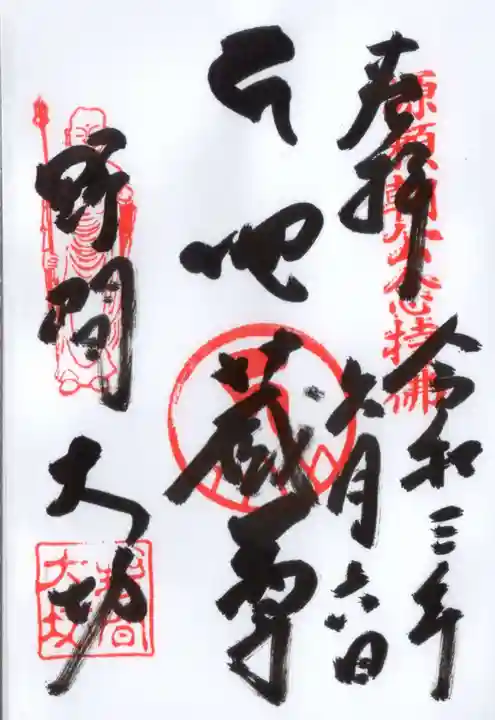 奉拝
源頼朝公念持佛
令和三年
六月六日
地蔵尊
野間大坊
野間
大坊